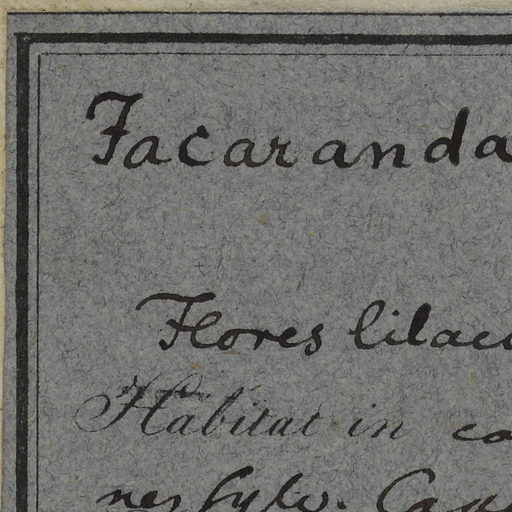 Jacaranda
Flores lilac
Habitat in
Sylv.